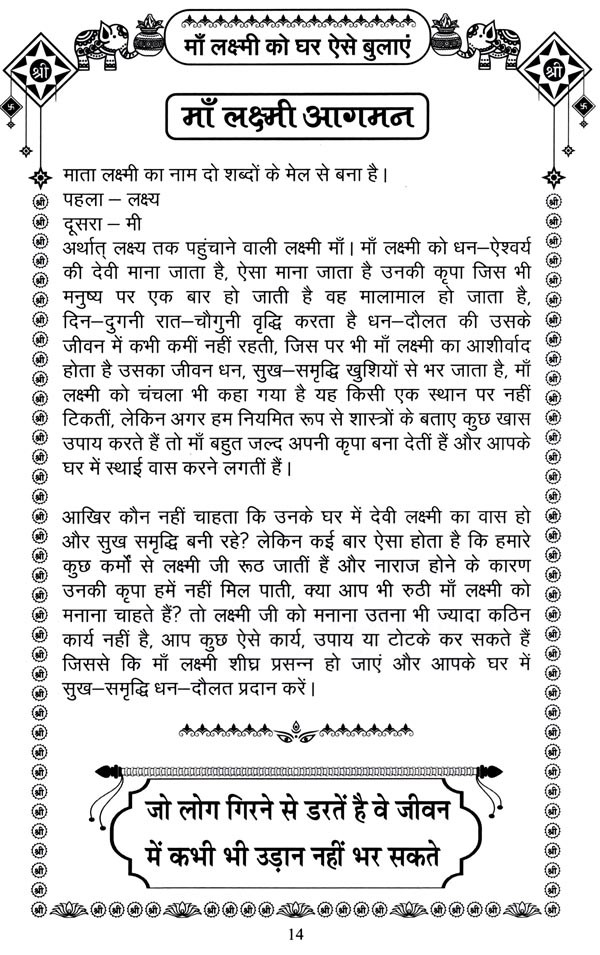 माँ लक्ष्मी को घर ऐसे बुलाएं
श्री
श्री
माँ लक्ष्मी आगमन
माता लक्ष्मी का नाम दो शब्दों के मेल से बना है।
पहला – लक्ष्य
दूसरा – मी
अर्थात् लक्ष्य तक पहुंचाने वाली लक्ष्मी माँ। माँ लक्ष्मी को धन–ऐश्वर्य
की देवी माना जाता है, ऐसा माना जाता है उनकी कृपा जिस भी
मनुष्य पर एक बार हो जाती है वह मालामाल हो जाता है,
दिन–दुगनी रात–चौगुनी वृद्धि करता है धन–दौलत की उसके
जीवन में कभी कमीं नहीं रहती, जिस पर भी माँ लक्ष्मी का आशीर्वाद
होता है उसका जीवन धन, सुख–समृद्धि खुशियों से भर जाता है, माँ
लक्ष्मी को चंचला भी कहा गया है यह किसी एक स्थान पर नहीं
टिकतीं, लेकिन अगर हम नियमित रूप से शास्त्रों के बताए कुछ खास
उपाय करते हैं तो माँ बहुत जल्द अपनी कृपा बना देतीं हैं और आपके
घर में स्थाई वास करने लगतीं हैं।
आखिर कौन नहीं चाहता कि उनके घर में देवी लक्ष्मी का वास हो
और सुख समृद्धि बनी रहे? लेकिन कई बार ऐसा होता है कि हमारे
कुछ कर्मों से लक्ष्मी जी रूठ जातीं हैं और नाराज होने के कारण
उनकी कृपा हमें नहीं मिल पाती, क्या आप भी रुठी माँ लक्ष्मी को
मनाना चाहते हैं? तो लक्ष्मी जी को मनाना उतना भी ज्यादा कठिन
कार्य नहीं है, आप कुछ ऐसे कार्य, उपाय या टोटके कर सकते हैं
जिससे कि माँ लक्ष्मी शीघ्र प्रसन्न हो जाएं और आपके घर में
सुख–समृद्धि धन–दौलत प्रदान करें।
जो लोग गिरने से डरतें है वे जीवन
में कभी भी उड़ान नहीं भर सकते
14